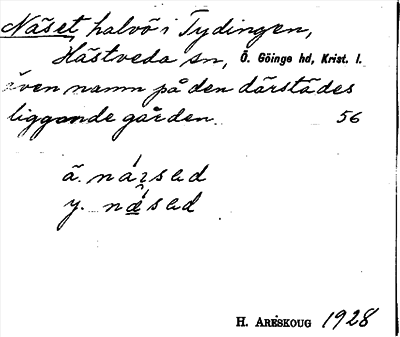 Näset, halvö i Tydingen,
Hästveda sn, Ö. Göinge hd, Krist. l.
även namn på den därstädes
liggande gården. 56
ä. názsəd
y. nǽsəd
H. ARESKOUG 1928